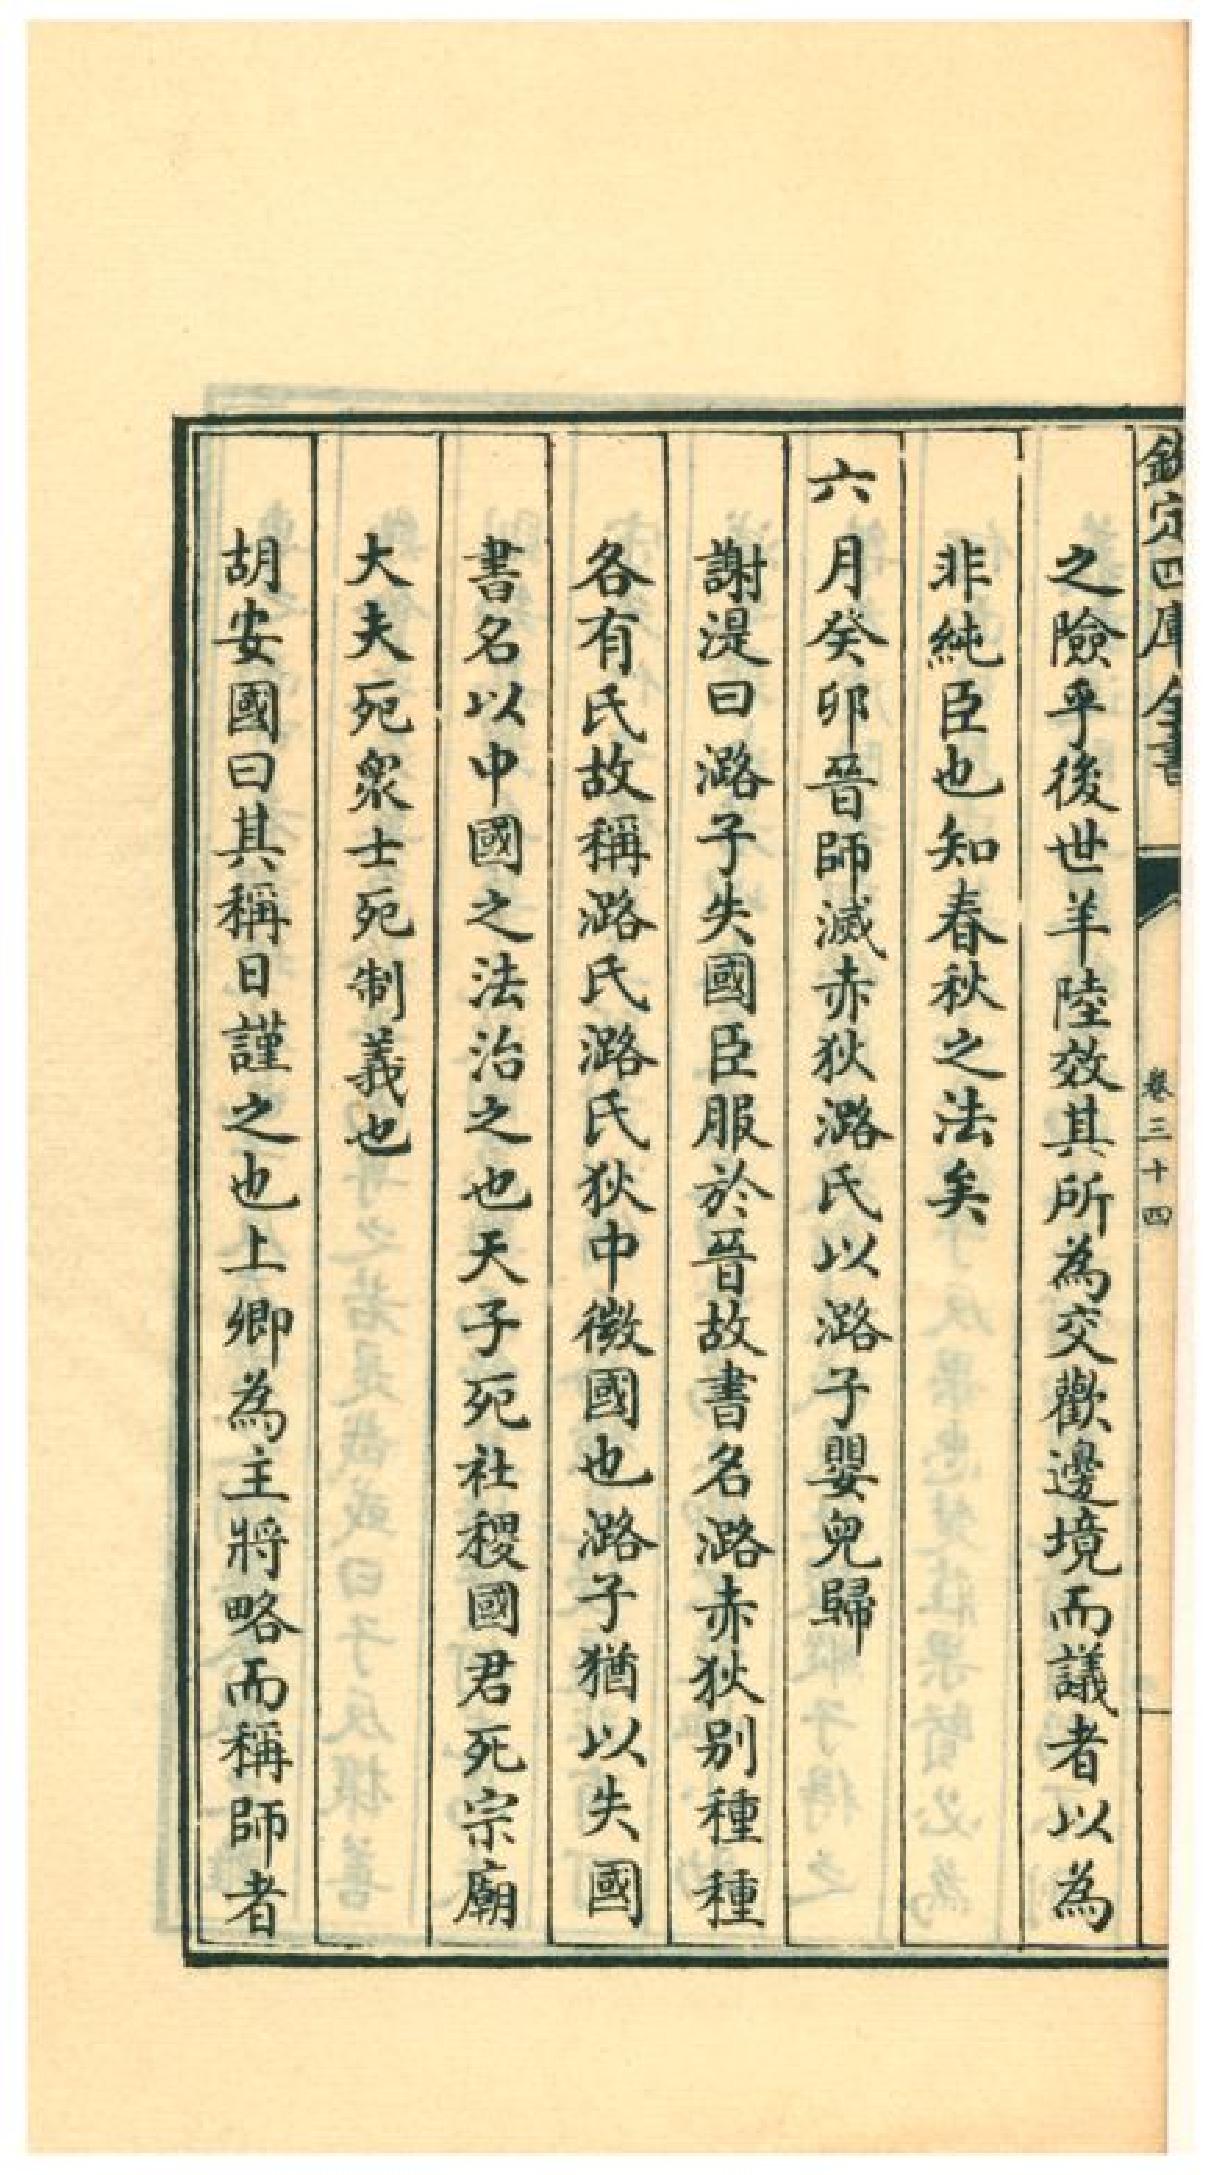 欽定四庫全書
卷三十四
之險乎後世羊陸效其所為交歡邊境而議者以為
非純臣也知春秋之法矣
六月癸卯晉師滅赤狄潞氏以潞子嬰兒歸
謝湜曰潞子失國臣服於晉故書名潞赤狄别種種
各有氏故稱潞氏潞氏狄中微國也潞子猶以失國
書名以中國之法治之也天子死社稷國君死宗廟
大夫死衆士死制義也
胡安國曰其稱日謹之也上卿為主將略而稱師者